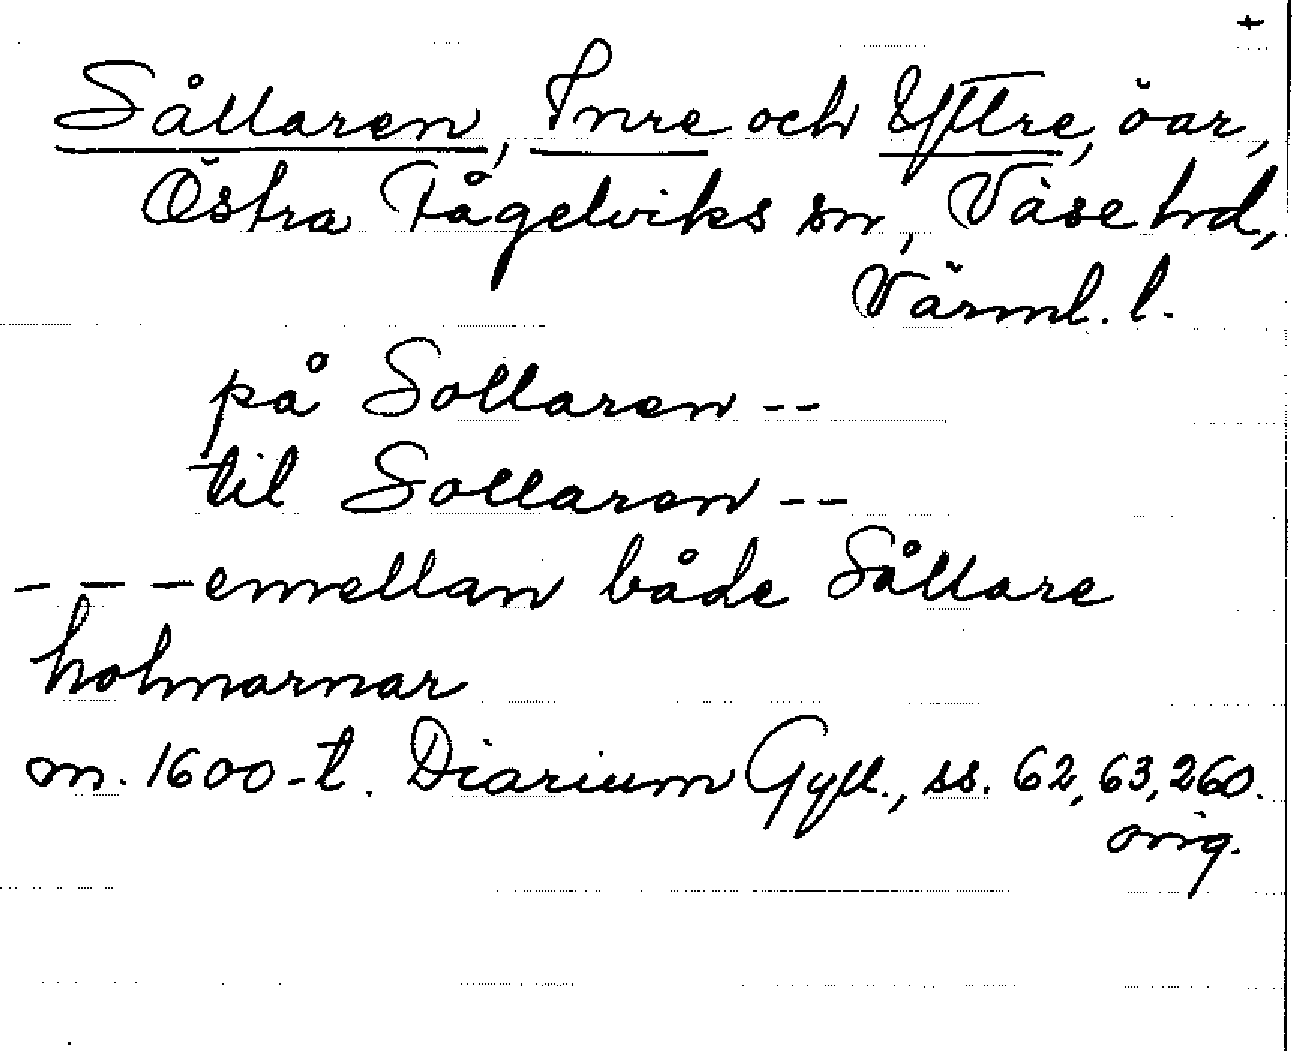 +
Sållaren, Inre och Yttre, öar,
Östra Fågelviks sn, Väse hd,
Värml. l.
på Sollaren --
til Sollaren --
- - - emellan både Sållare
holmarnar
m. 1600-t. Diarium Gyll., ss. 62, 63, 260.
orig.